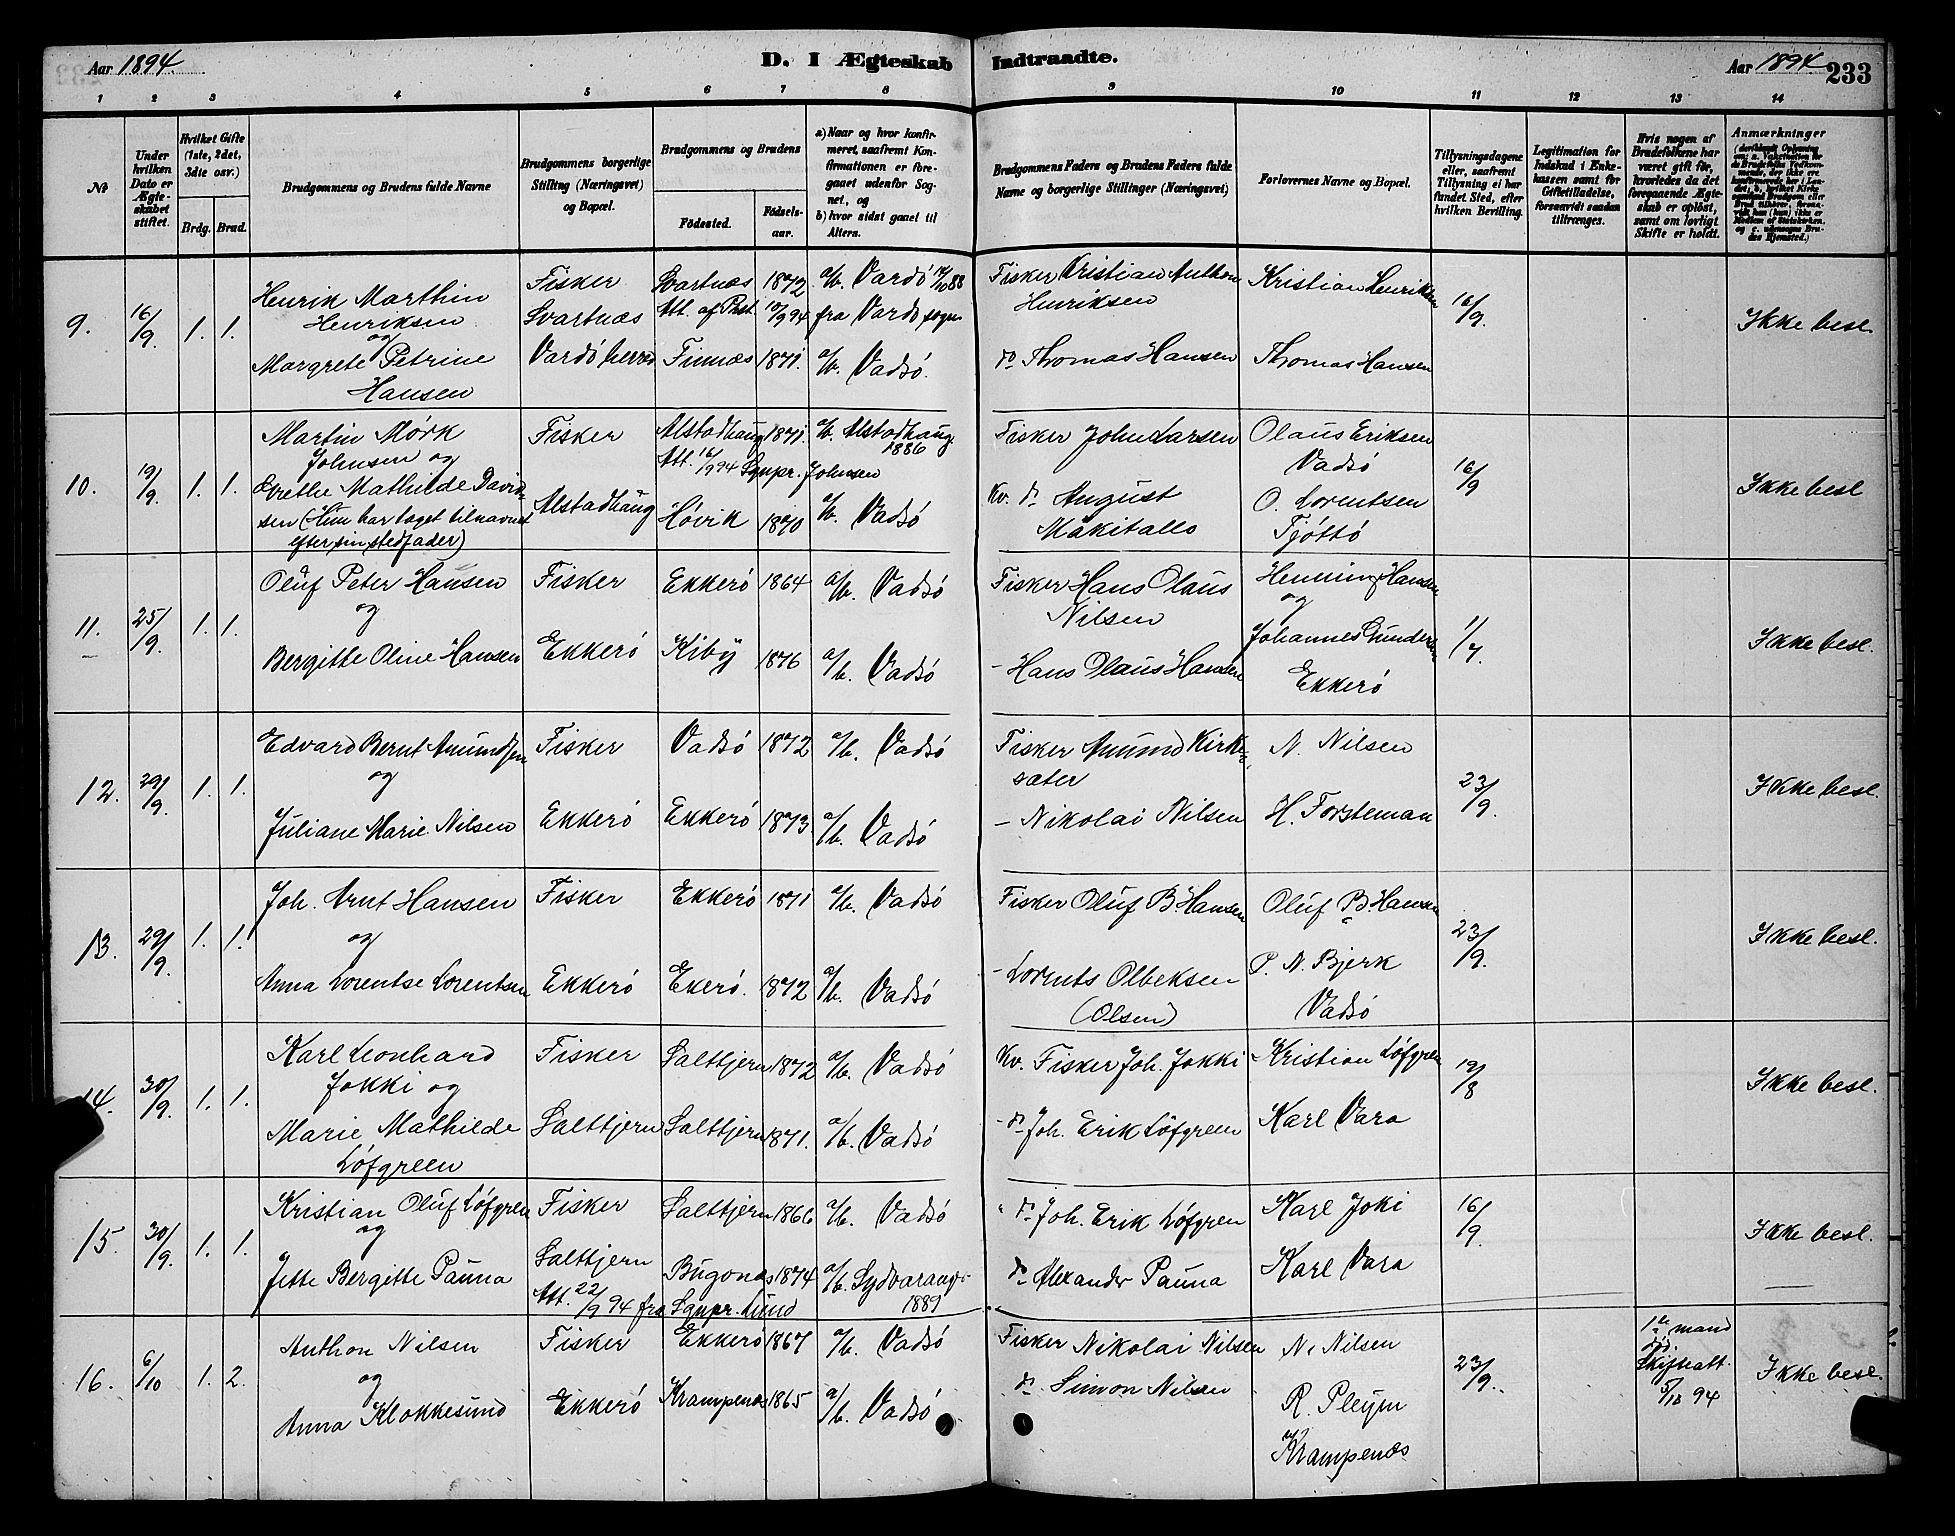 Aar 1894.
D. I Ægteskab Indtraadte.
Aar 1894
233
1 2 3 4 5 6 7 8 9 10 11 12 13 14
No
Under hvilken Dato er Ægteskabet stiftet.
Hvilket Gifte (1ste, 2det, 3die osv.)
Brdg. Brud.
Brudgommens og Brudens fulde Navne
Brudgommens borgerlige Stilling (Næringsvei) og Bopæl.
Brudgommens og Brudens
Fødested.
Fødsels-aar.
a) Naar og hvor konfirmeret, saafremt Konfirmationen er foregaaet udenfor Sognet, og
b) hvor sidst gaaet til Alters.
Brudgommens Faders og Brudens Faders fulde Navne og borgerlige Stillinger (Næringsvei)
Forlovernes Navne og Bopæl.
Tillysningsdagene eller, saafremt Tillysning ei har fundet Sted, efter hvilken Bevilling.
Legitimation for Indskud i Enkekassen samt for Giftetilladelse, forsaavidt saadan tiltrænges.
Hvis nogen af Brudefolkene har været gift før, hvorledes da det foregaaende Ægteskab er opløst, samt om lovligt Skifte er holdt.
Anmærkninger
9. 16/9. 1. 1.
Henrik Marthin
Henriksen
og
Margrete Petrine
Hansen
Fisker
Svartnæs
Vardö herred
Svartnæs 1872
Att. af Prst. 10/9 94 fra Vardö sogn
Finnæs 1871.
a/b. Vardö 14/10 88
a/b. Vadsö.
Fisker Kristian Anthon
Henriksen
do Thomas Hansen
Kristian Henriksen
Thomas Hansen
16/9.
Ikke besl.
10. 19/9. 1. 1.
Martin Mörk
Johnsen og
Grethe Mathilde David-
sen (Hun har taget tilnavnet
efter sin stedfader)
Fisker
Alstadhaug
Alstadhaug 1871.
Att. 16/9 94 Sgnpr. Johnsen
Hövik 1870
a/b. Alstadhaug
1886
a/b. Vadsö
Fisker John Larsen
Kv. do August
Mäkitallo
Olaus Eriksen
Vadsö
O. Lorentsen
Tjöttö
16/9
Ikke besl
11. 25/9. 1. 1.
Oluf Peter Hansen
og
Bergitte Oline Hansen
Fisker
Ekkerö
Ekkerö 1864
Kiby 1876
a/b. Vadsö
a/b. Vadsö
Fisker Hans Olaus
Nilsen
- Hans Olaus Hansen
Henning Hansen
og
Johannes Gundersen
Ekkerö
1/7.
Ikke besl.
12. 29/9. 1. 1.
Edvard Bernt Amundsen
og
Juliane Marie Nilsen
Fisker
Ekkerö
Vadsö 1872
Ekkerö 1873
a/b. Vadsö
a/b. Vadsö
Fisker Amund Kirke-
sæter
- Nikolai Nilsen
N. Nilsen
H. Forsteman
23/9.
Ikke besl.
13. 29/9. 1. 1.
Joh. Arnt Hansen
og
Anna Lorentse Lorentsen
Fisker
Ekkerö
Ekkerö 1871
Ekerö. 1872
a/b. Vadsö
a/b. Vadsö
Fisker Oluf B. Hansen
- Lorents Olbeksen
(Olsen)
Oluf B. Hansen
P. N. Bjerk
Vadsö
23/9.
Ikke besl.
14. 30/9. 1. 1.
Karl Leonhard
Jokki og
Marie Mathilde
Löfgreen
Fisker
Salttjern
Salttjern 1872
Salttjern 1871.
a/b. Vadsö
a/b. Vadsö
Kv. Fisker Joh. Jokki
- do Joh. Erik Löfgreen
Kristian Löfgren
Karl Vara
19/8
Ikke besl.
15. 30/9. 1. 1.
Kristian Oluf Löfgren
og
Jette Bergitte Pauna
Fisker
Salttjern
Att. 22/9 94 fra Sgnpr. Lund
Salttjern 1866
Bugönæs 1874
a/b. Vadsö
a/b. Sydvaranger
1889
" do Joh. Erik Löfgren
do Alexander Pauna
Karl Joki
Karl Vara
16/9.
Ikke besl.
16. 6/10 1. 2.
Anthon Nilsen
og
Anna Klokkesund
Fisker
Ekkerö
Ekkerö 1867
Krampenæs 1865
a/b. Vadsö
a/b. Vadsö
Fisker Nikolai Nilsen
do. Simon Nilsen
N. Nilsen
R. Pleym
Krampenæs
23/9.
1te mand
död.
Skifteatt.
5/10 94
Ikke besl.